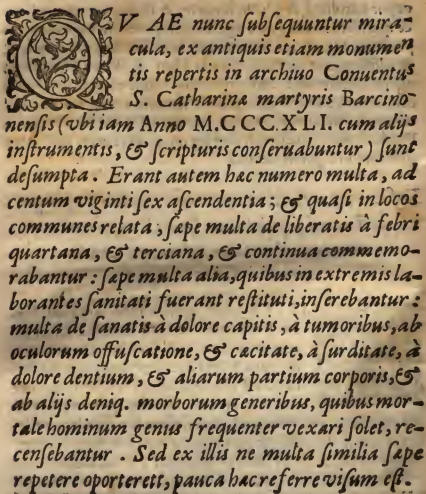 QV AE nunc ſubſequuntur mira-
cula, ex antiquis etiam monumen
tis repertis in archiuo Conuentus
S. Catharinæ martyris Barcino-
nenſis (vbi iam Anno M.CCCXLI. cum alijs
inſtrumentis, & ſcripturis conſeruabuntur) ſunt
deſumpta. Erant autem hæc numero multa, ad
centum viginti ſex aſcendentia; & quaſi in locos
communes relata; ſæpe multa de liberatis à febri
quartana, & terciana, & continua commemo-
rabantur: ſæpe multa alia, quibus in extremis la-
borantes ſanitati fuerant reſtituti, inſerebantur:
multa de ſanatis à dolore capitis, à tumoribus, ab
oculorum offuſcatione, & cæcitate, à ſurditate, à
dolore dentium, & aliarum partium corporis, &
ab alijs deniq. morborum generibus, quibus mor-
tale hominum genus frequenter vexari ſolet, re-
cenſebantur. Sed ex illis ne multa ſimilia ſæpe
repetere oporterett, pauca hæc referre viſum eſt.